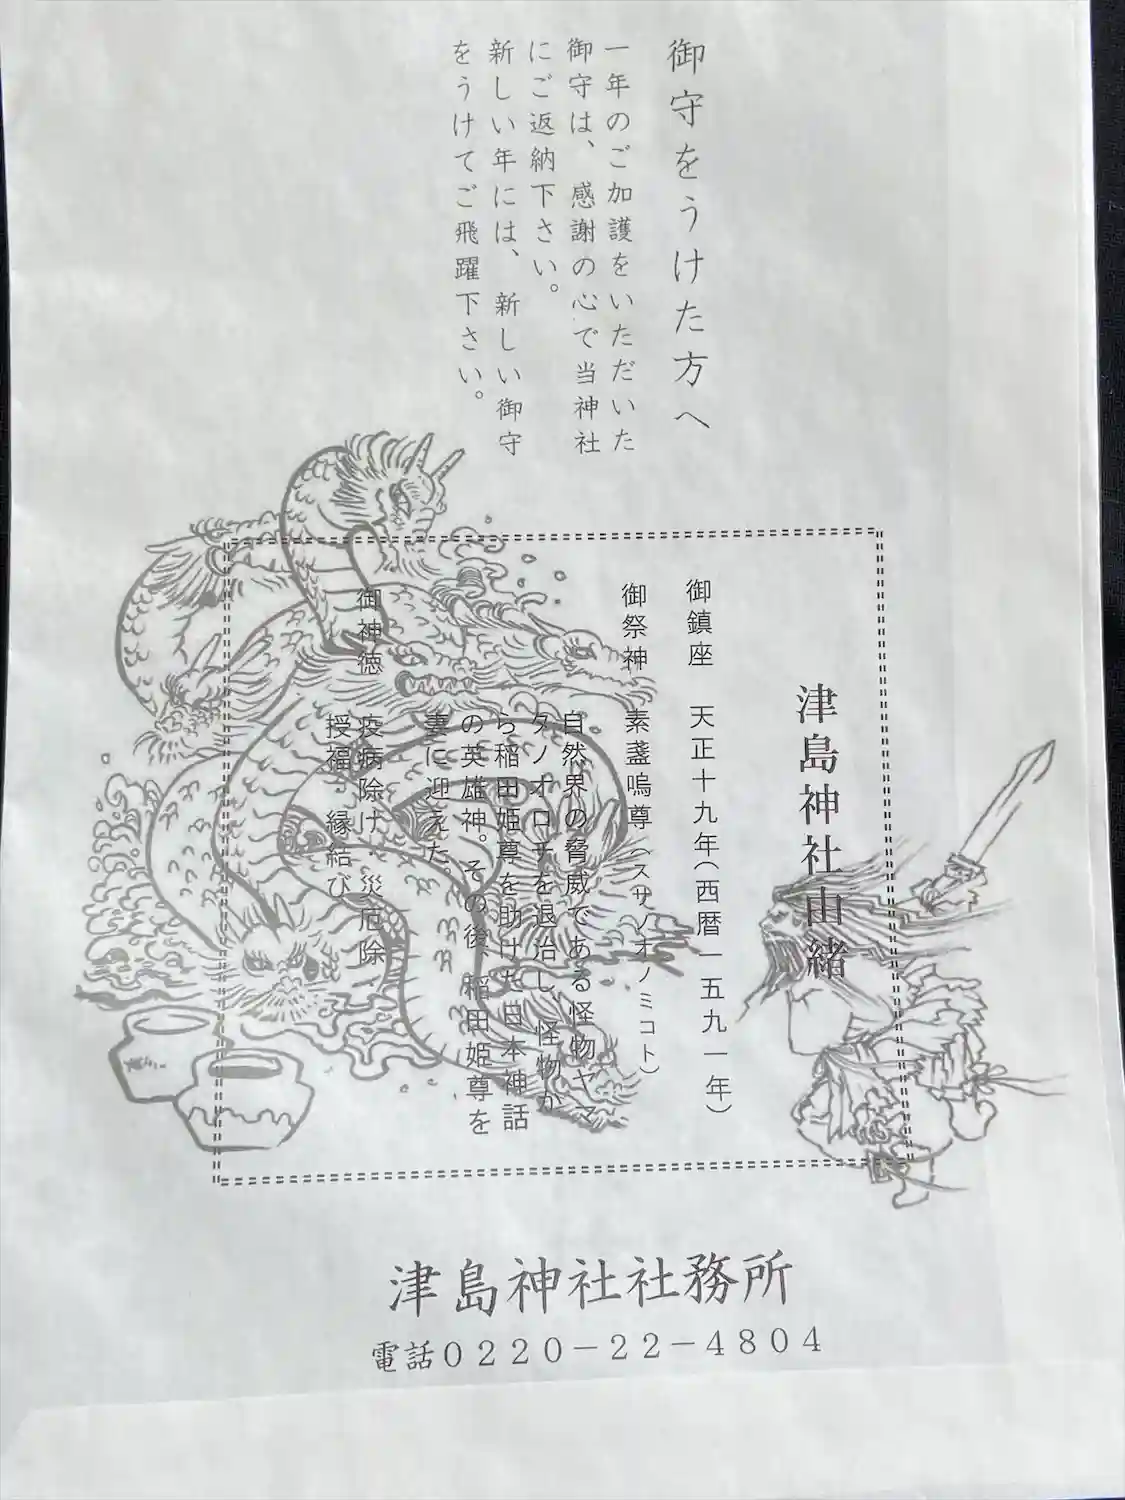 御守をうけた方へ
一年のご加護をいただいた
御守は、感謝の心で当神社
にご返納下さい。
新しい年には、新しい御守
をうけてご飛躍下さい。
津島神社由緒
御鎮座 天正十九年(西暦一五九一年)
御祭神 素盞嗚尊(スサノオノミコト)
自然界の脅威である怪物ヤマ
タノオロチを退治し、怪物か
ら稲田姫尊を助けた日本神話
の英雄神。その後、稲田姫尊を
妻に迎えた
御神徳 疫病除け・災厄除・
授福・縁結び
津島神社社務所
電話0220-22-4804